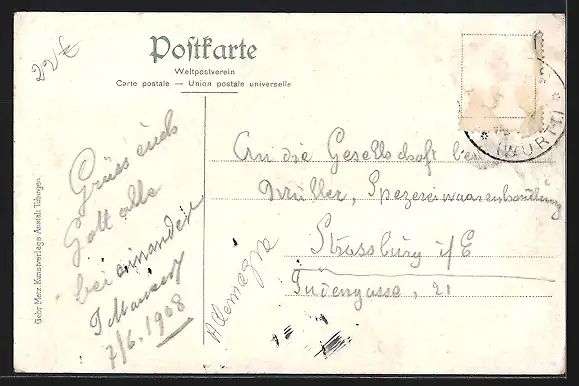 22€
Postkarte
Weltpostverein
Carte postale — Union postale universelle
Grüss euch
Gott alle
bei einander
7/6. 1908
Gebr. Metz, Kunstverlags-Anstalt Tübingen
(WÜRTT.)
An die Gesellschaft bei
Müller, Spezereiwaarenhandlung
Strassburg i/E
Judengasse, 21
Allemagne